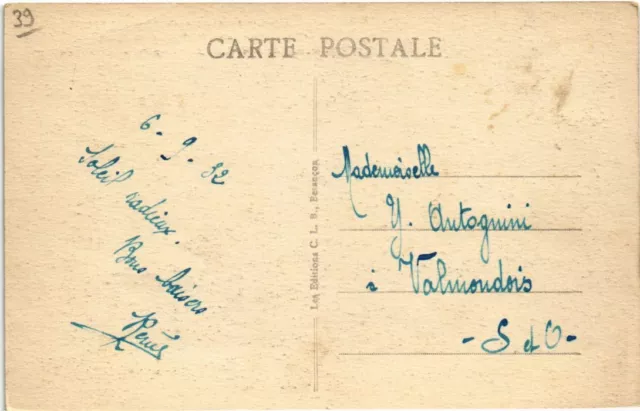 39
CARTE POSTALE
6-9-32
Soleil radieux.
Bons baisers
René
Les Editions C. L. B., Besançon
Mademoiselle
Y. Antognini
à Valmondois
- S et O -